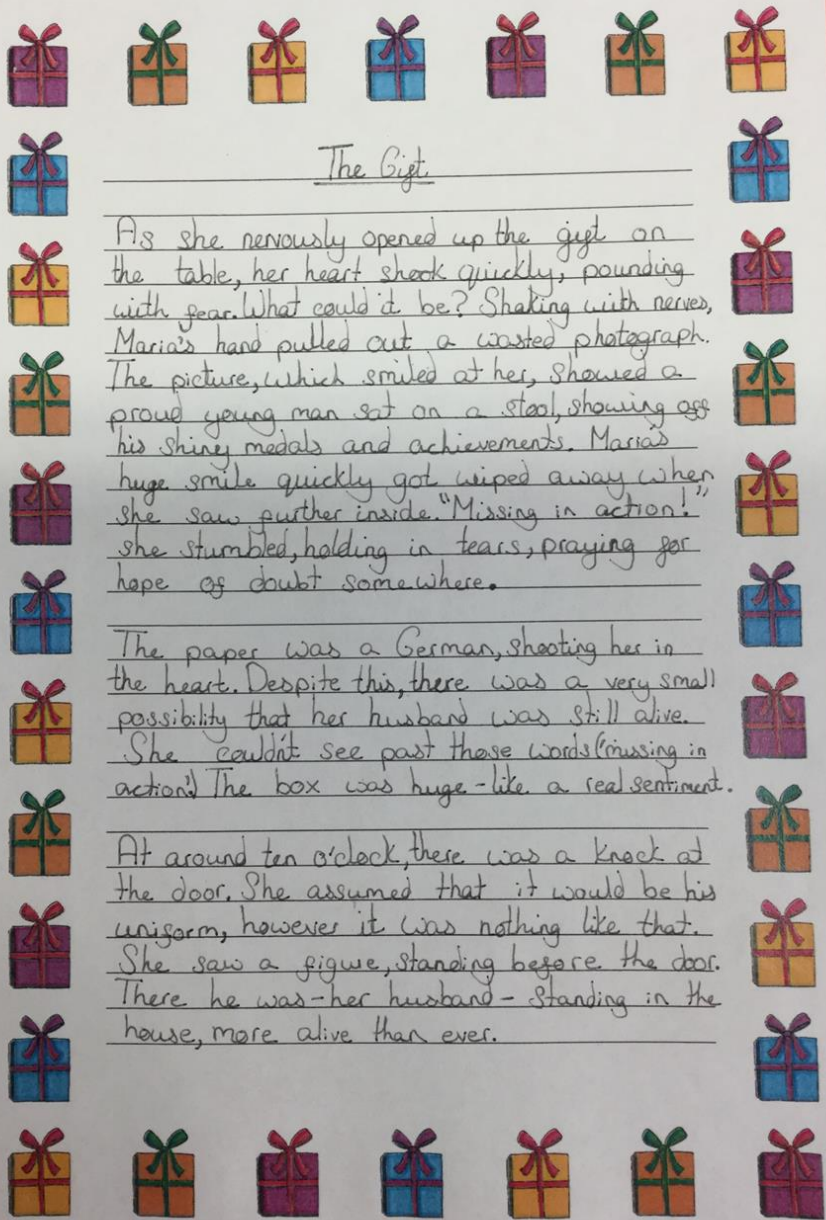 The Gift
As she nervously opened up the gift on
the table, her heart shook quickly, pounding
with fear. What could it be? Shaking with nerves,
Maria's hand pulled out a wasted photograph.
The picture, which smiled at her, showed a
proud young man sat on a stool, showing off
his shiny medals and achievements. Maria's
huge smile quickly got wiped away when
she saw further inside. "Missing in action!"
she stumbled, holding in tears, praying for
hope of doubt somewhere.
The paper was a German, shooting her in
the heart. Despite this, there was a very small
possibility that her husband was still alive.
She couldn't see past those words ('missing in
action'.) The box was huge - like a real sentiment.
At around ten o'clock, there was a knock at
the door. She assumed that it would be his
uniform, however it was nothing like that.
She saw a figure, standing before the door.
There he was - her husband - standing in the
house, more alive than ever.